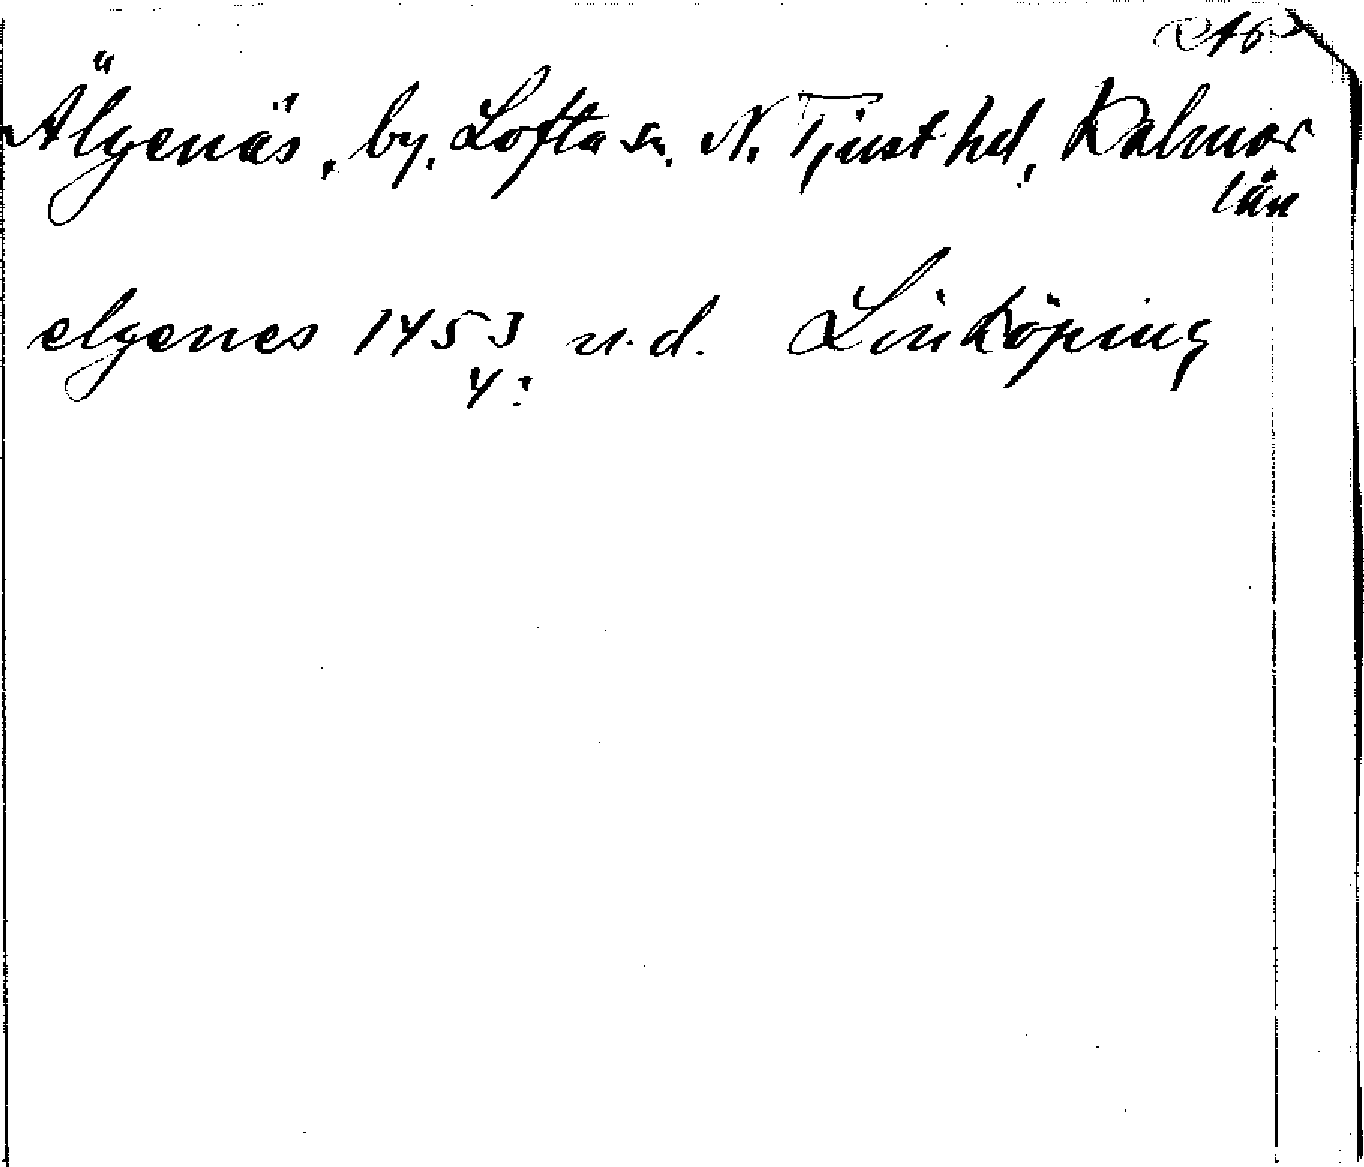 Älgenäs, by, Lofta sn, N. Tjust hd, Kalmar
län
elgenes 1453 u.d. Linköping
4: